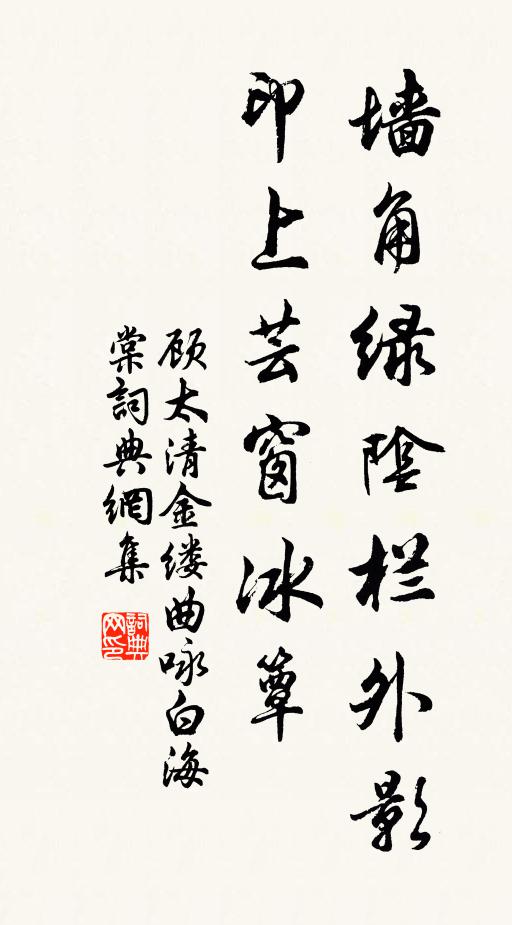 墙角绿陰栏外影
印上芸窗冰簟
顾太清金缕曲咏白海
棠詞典網集
詞典
网印